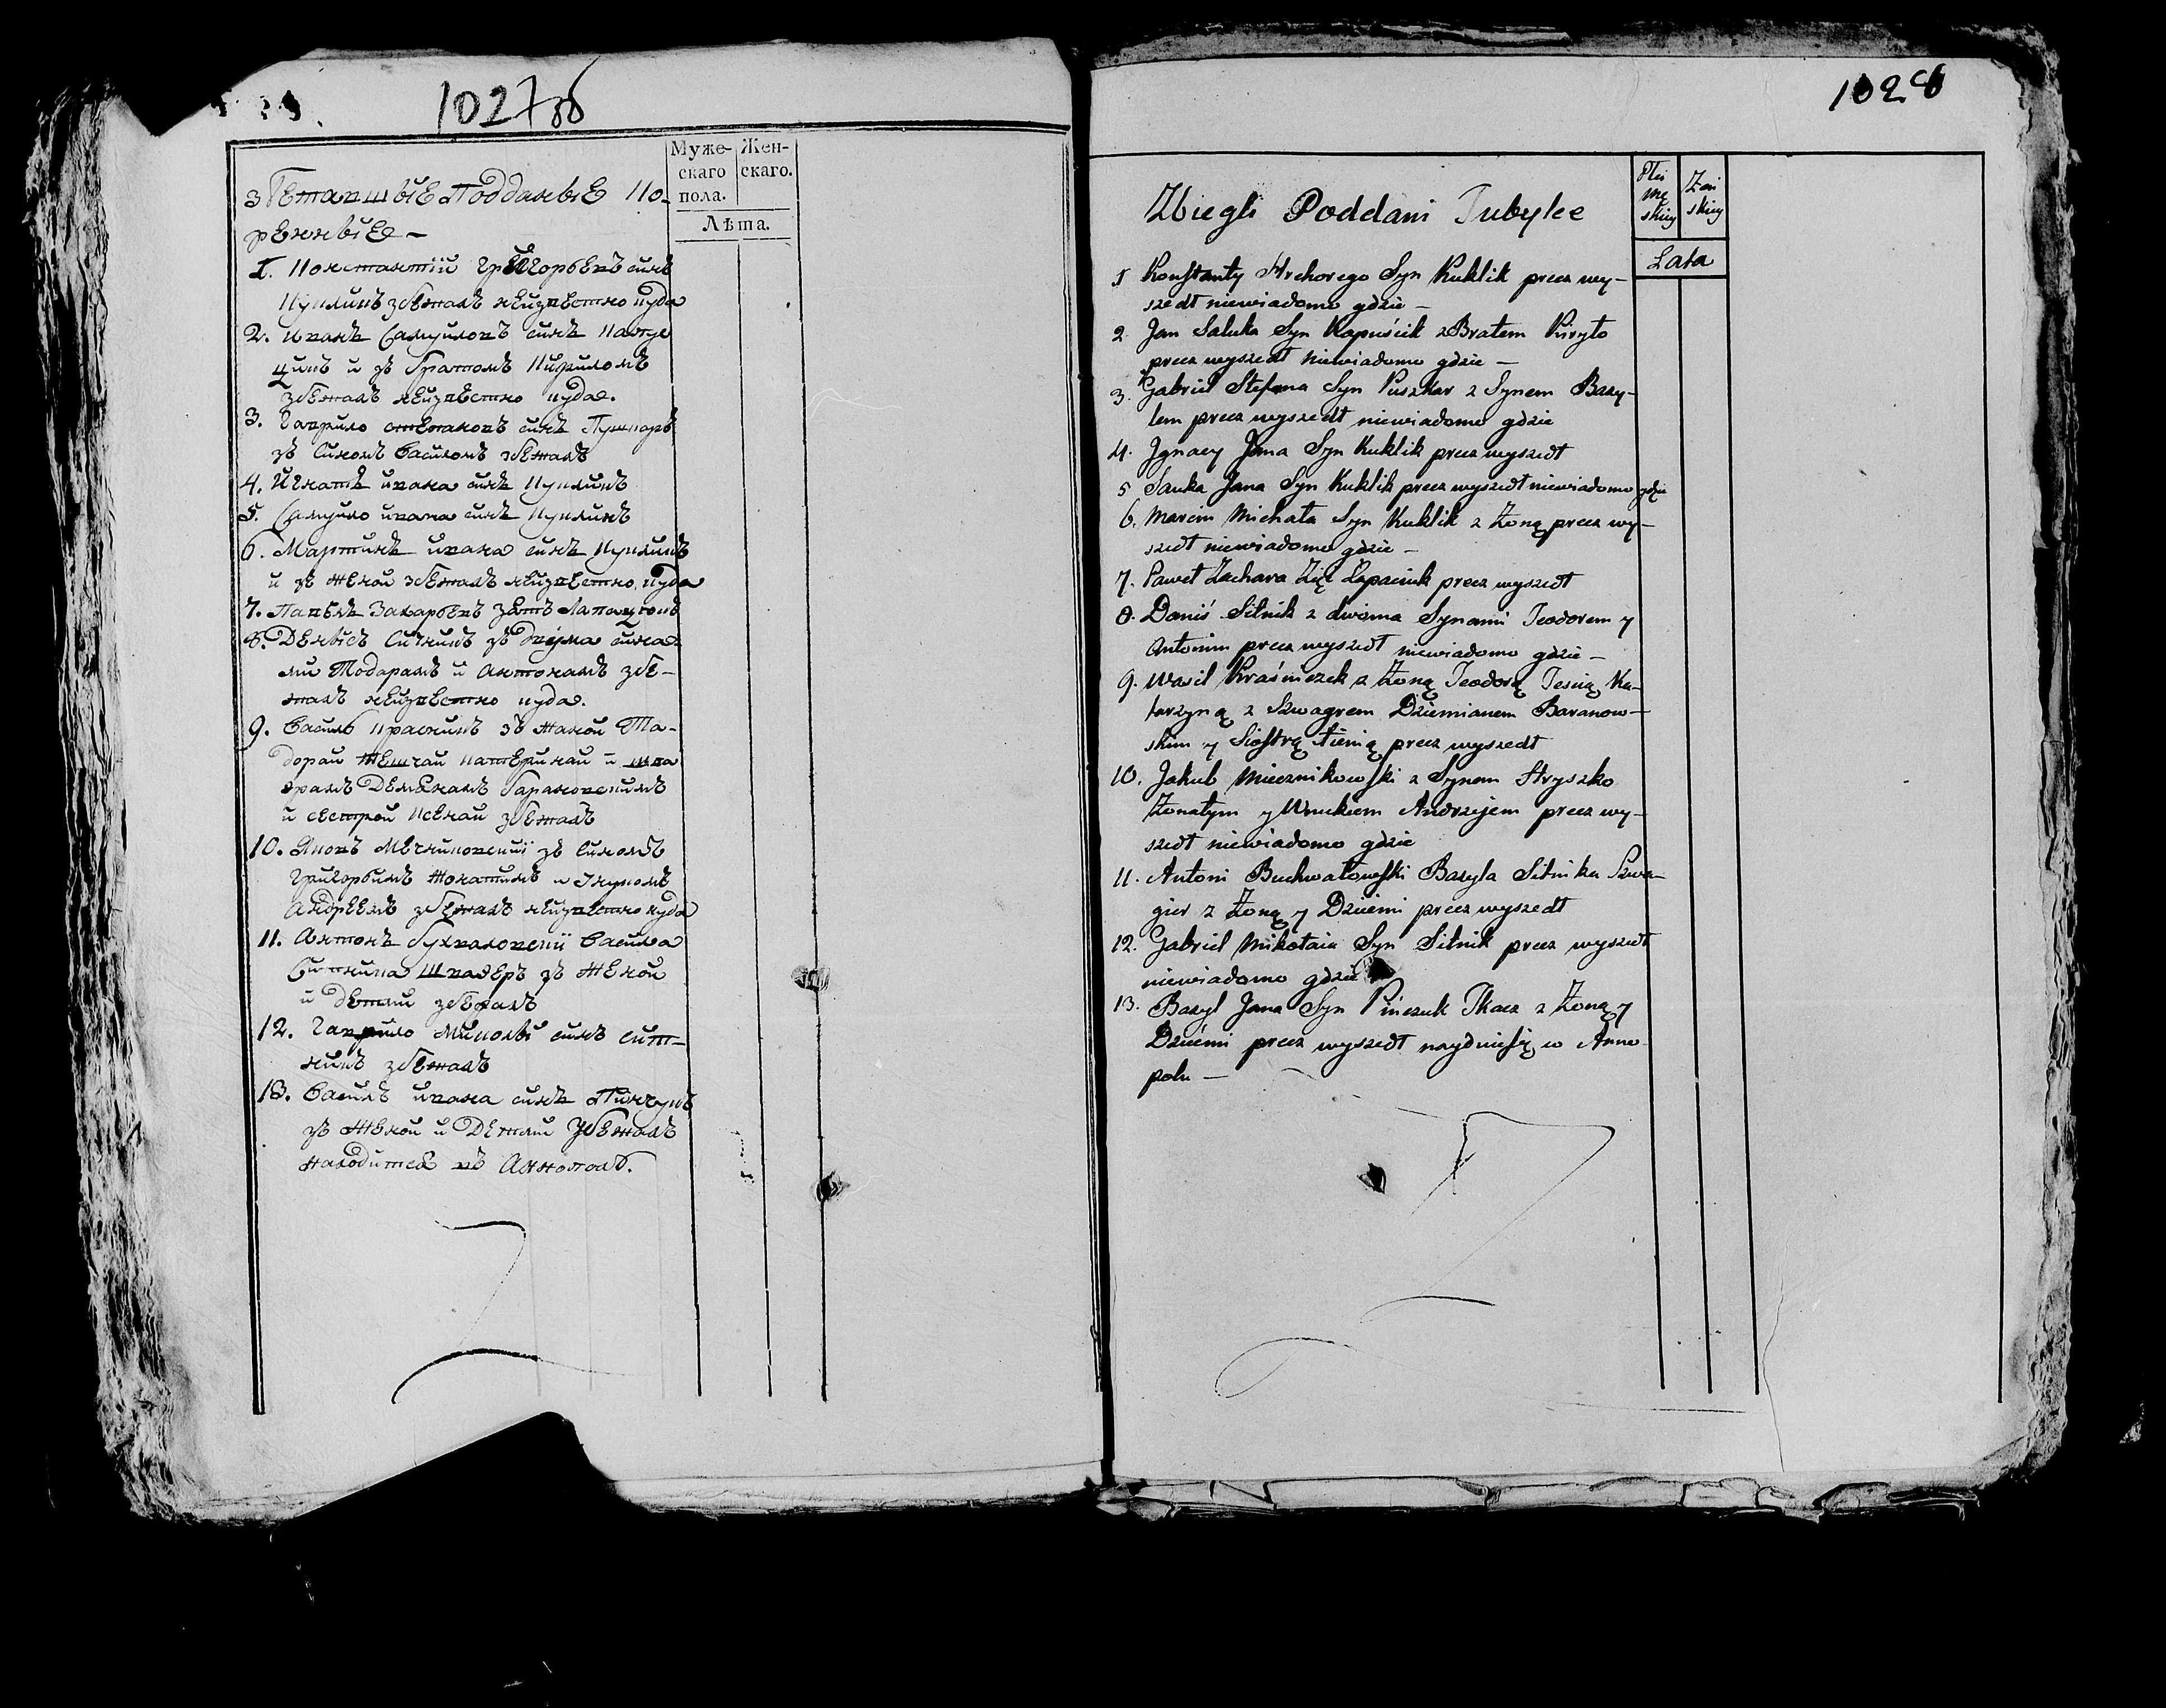 1027об
Муже-
скаго
пола.
Жен-
скаго.
Лѣта.
збежавшые Подданые Ко-
ренные —
1. Константiй Григорьевъ синъ
Кукликъ збежалъ неизвестно куда
2. Иванъ Самуиловъ синъ Капус
цикъ и зъ братомъ Кириломъ
збежалъ неизвестно куда.
3. Гаврило стефановъ синъ Пушкаръ
зъ Синомъ Василомъ збежалъ
4. Игнатъ ивана синъ Кукликъ
5. Самуило ивана синъ Кукликъ
6. Мартинъ ивана синъ Кукликъ
и зъ женой збежалъ неизвестно куда
7. Павелъ Захарьевъ зять Лапацюкъ
8. Денысъ Ситникъ зъ двума сина-
ми Тодарамъ и Антонамъ збе-
жалъ неизвестно куда.
9. Василь Краскикъ зъ жаной Та-
дорай тешчай катеринай и шва
грамъ Демянамъ барановскимъ
и сестрой Ксенай збежалъ
10. Яковъ Мечниковский зъ Синомъ
григорьимъ жонатимъ и внукомъ
Андреемъ збежалъ неизвестно куда
11. Антонъ бухваловскiй Васила
Ситника швагеръ зъ женой
и детми збежалъ
12. Гаврило Миколы синъ сит-
никъ збежалъ
13. Василъ ивана синъ Пинчукъ
зъ женой и Детми збежалъ
находится въ Аннополѣ.
1028
Zbiegli Poddani Tubylce
Płci
Mę
skiey
Żeń
skiey
Lata
1 Konstanty Hrehorego Syn Kuklik precz wy-
szedł niewiadomo gdzie —
2. Jan Saluka Syn Kapuścik z Bratem Kiryło
precz wyszedł niewiadomo gdzie —
3. Gabriel Stefana Syn Puszkar z Synem Bazy-
lem precz wyszedł niewiadomo gdzie
4. Jgnacy Jana Syn Kuklik precz wyszedł
5 Sauka Jana Syn Kuklik precz wyszedł niewiadomo gdzie
6. Marcin Michała Syn Kuklik z Żoną precz wy-
szedł niewiadomo gdzie —
7. Paweł Zachara Zięć Łapaciuk precz wyszedł
8. Daniś Sitnik z dwoma Synami Teodorem y
Antonim precz wyszedł niewiadomo gdzie —
9. Wasil Kraśniczek z Żoną Teodorą Teścią Ka-
tarzyną z Szwagrem Dziemianem Baranow-
skim y Siostrą Xienią precz wyszedł
10. Jakub Miecznikowski z Synem Hryszko
Żonatym y Wnukiem Andrzejem precz wy-
szedł niewiadomo gdzie
11. Antoni Buchwałowski Bazyla Sitnika Szwa-
gier z Żoną y Dziećmi precz wyszedł
12. Gabriel Mikołaia Syn Sitnik precz wyszedł
niewiadomo gdzie
13. Bazyl Jana Syn Pińczuk Tkacz z Żoną y
Dziećmi precz wyszedł nayduie się w Anno
polu —